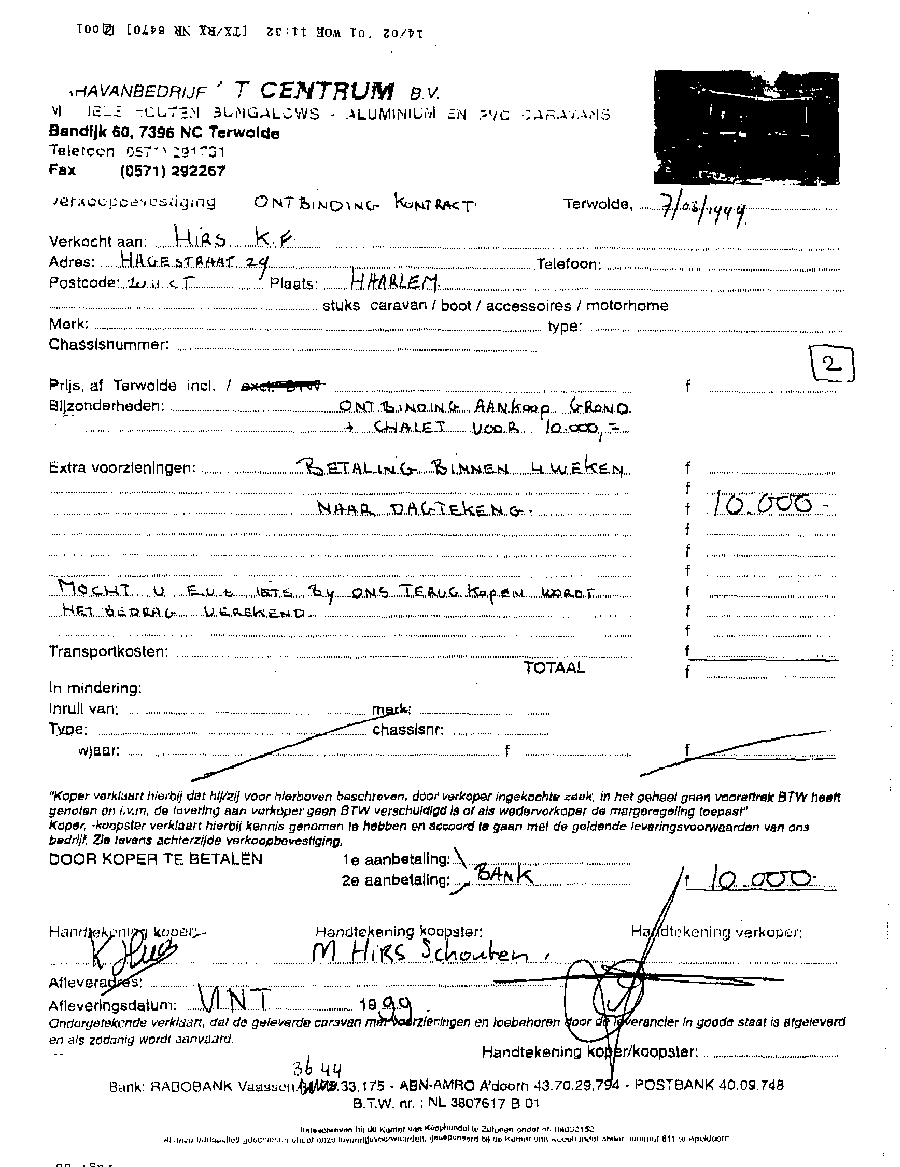 14/02 '01 WOE 11:32 [TX/RX NR 8470] 001
HAVANBEDRIJF 'T CENTRUM B.V.
HOUTEN BUNGALOWS - ALUMINIUM EN PVC CARAVANS
Bandijk 60, 7396 NC Terwolde
Telefoon (0571) 291731
Fax (0571) 292267
Verkoopbevestiging ONTBINDING KONTRACT Terwolde, 7/03/1999
Verkocht aan: HIRS K.F
Adres: HAGESTRAAT 29 Telefoon:
Postcode: Plaats: HAARLEM
stuks caravan / boot / accessoires / motorhome
Merk: type:
Chassisnummer:
2
Prijs, af Terwolde incl. / excl. BTW f
Bijzonderheden: ONTBINDING AANKOOP GROND
+ CHALET VOOR 10.000,=
Extra voorzieningen: BETALING BINNEN 4 WEKEN f
f
NAAR DAGTEKENG. f 10.000-
f
f
f
MOCHT U E.V.T IETS BY ONS TERUG KOPEN WORDT f
HET BEDRAG VEREKEND f
f
Transportkosten: f
TOTAAL f
In mindering:
Inruil van: merk:
Type: chassisnr:
wjaar: f f
"Koper verklaart hierbij dat hij/zij voor hierboven beschreven, door verkoper ingekochte zaak, in het geheel geen vooraftrek BTW heeft
genoten en i.v.m. de levering aan verkoper geen BTW verschuldigd is of als wederverkoper de margeregeling toepast"
Koper, -koopster verklaart hierbij kennis genomen te hebben en accoord te gaan met de geldende leveringsvoorwaarden van ons
bedrijf. Zie tevens achterzijde verkoopbevestiging.
DOOR KOPER TE BETALEN 1e aanbetaling:
2e aanbetaling: BANK f 10.000-
Handtekening koper: Handtekening koopster: Handtekening verkoper:
K Hirs M Hirs Schouten.
Afleveradres:
Afleveringsdatum: VNT 1999
Ondergetekende verklaart, dat de geleverde caravan met voorzieningen en toebehoren door de leverancier in goede staat is afgeleverd
en als zodanig wordt aanvaard.
Handtekening koper/koopster:
3644
Bank: RABOBANK Vaassen 33.175 - ABN-AMRO A'doorn 43.70.29.794 - POSTBANK 40.09.748
B.T.W. nr. : NL 3807617 B 01
Ingeschreven bij de Kamer van Koophandel te Zutphen onder nr. 08032152